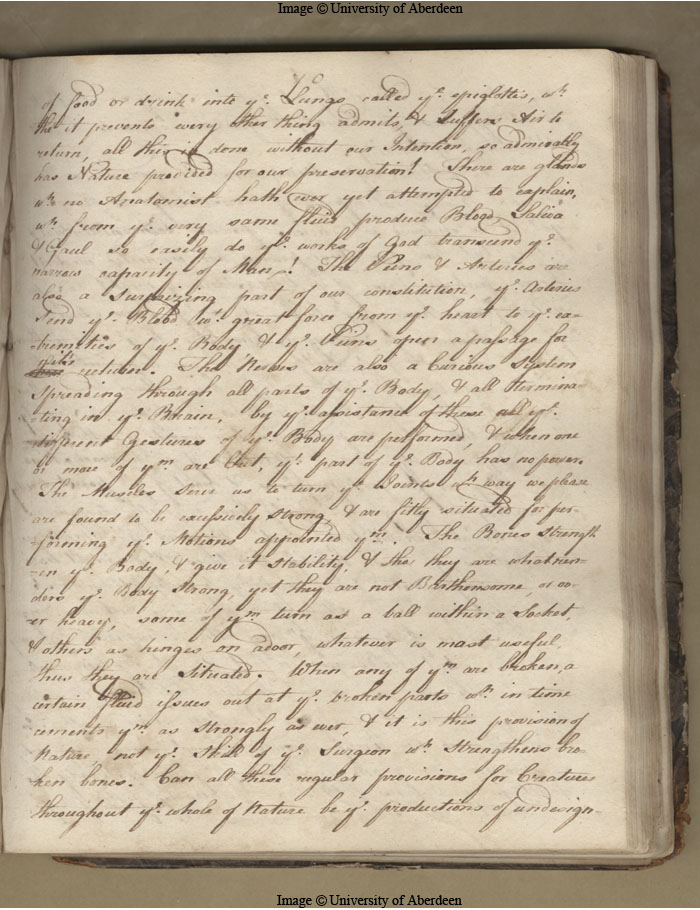 Image © University of Aberdeen
of food or drink into ye. Lungs called ye. epiglottis, wh.
tho it prevents every other thing admits, & Suffers Air to
return, all this is done without our Intention, so admirably
has Nature provided for our preservation! There are glands
wh. no Anatomist hath ever yet attempted to explain,
wh. from ye. very same fluid produce Blood, Saliva
& Gaul so easily do ye. works of God transcend ye.
narrow capacity of Man! The Viens & Arteries are
also a Surprizing part of our constitution, ye. Arteries
Send ye. Blood wt. great force from ye. heart to ye. ex-
-tremeties of ye. Body & ye. Viens open a passage for
its return. The Nerves are also a Curious System
Spreading through all parts of ye. Body, & all termina-
-ting in ye. Brain, by ye. assistance of these all ye.
different Gestures of ye. Body are performed, & when one
or more of ym are Cut, yt. part of ye. Body has no power.
The Muscles serve us to turn ye. Joints wh. way we please
are found to be excessively strong, & are fitly situated for per-
-forming ye. Motions appointed ym. The Bones Strength-
-en ye. Body, & give it stability, & tho they are what ren-
ders ye. Body Strong, yet they are not Burthensome, or ov-
er heavy, some of ym turn as a ball within a Socket,
& others as hinges on adoor, whatever is most useful,
thus they are Situated. When any of ym are broken, a
certain fluid issues out at ye. broken parts wh. in time
cements ym as strongly as ever, & it is this provision of
Nature, not ye. Skill of ye. Surgeon wh. Strengthens bro-
ken bones. Can all these regular provisions for Creatures
throughout ye. whole of Nature be ye. productions of undesign-
Image © University of Aberdeen